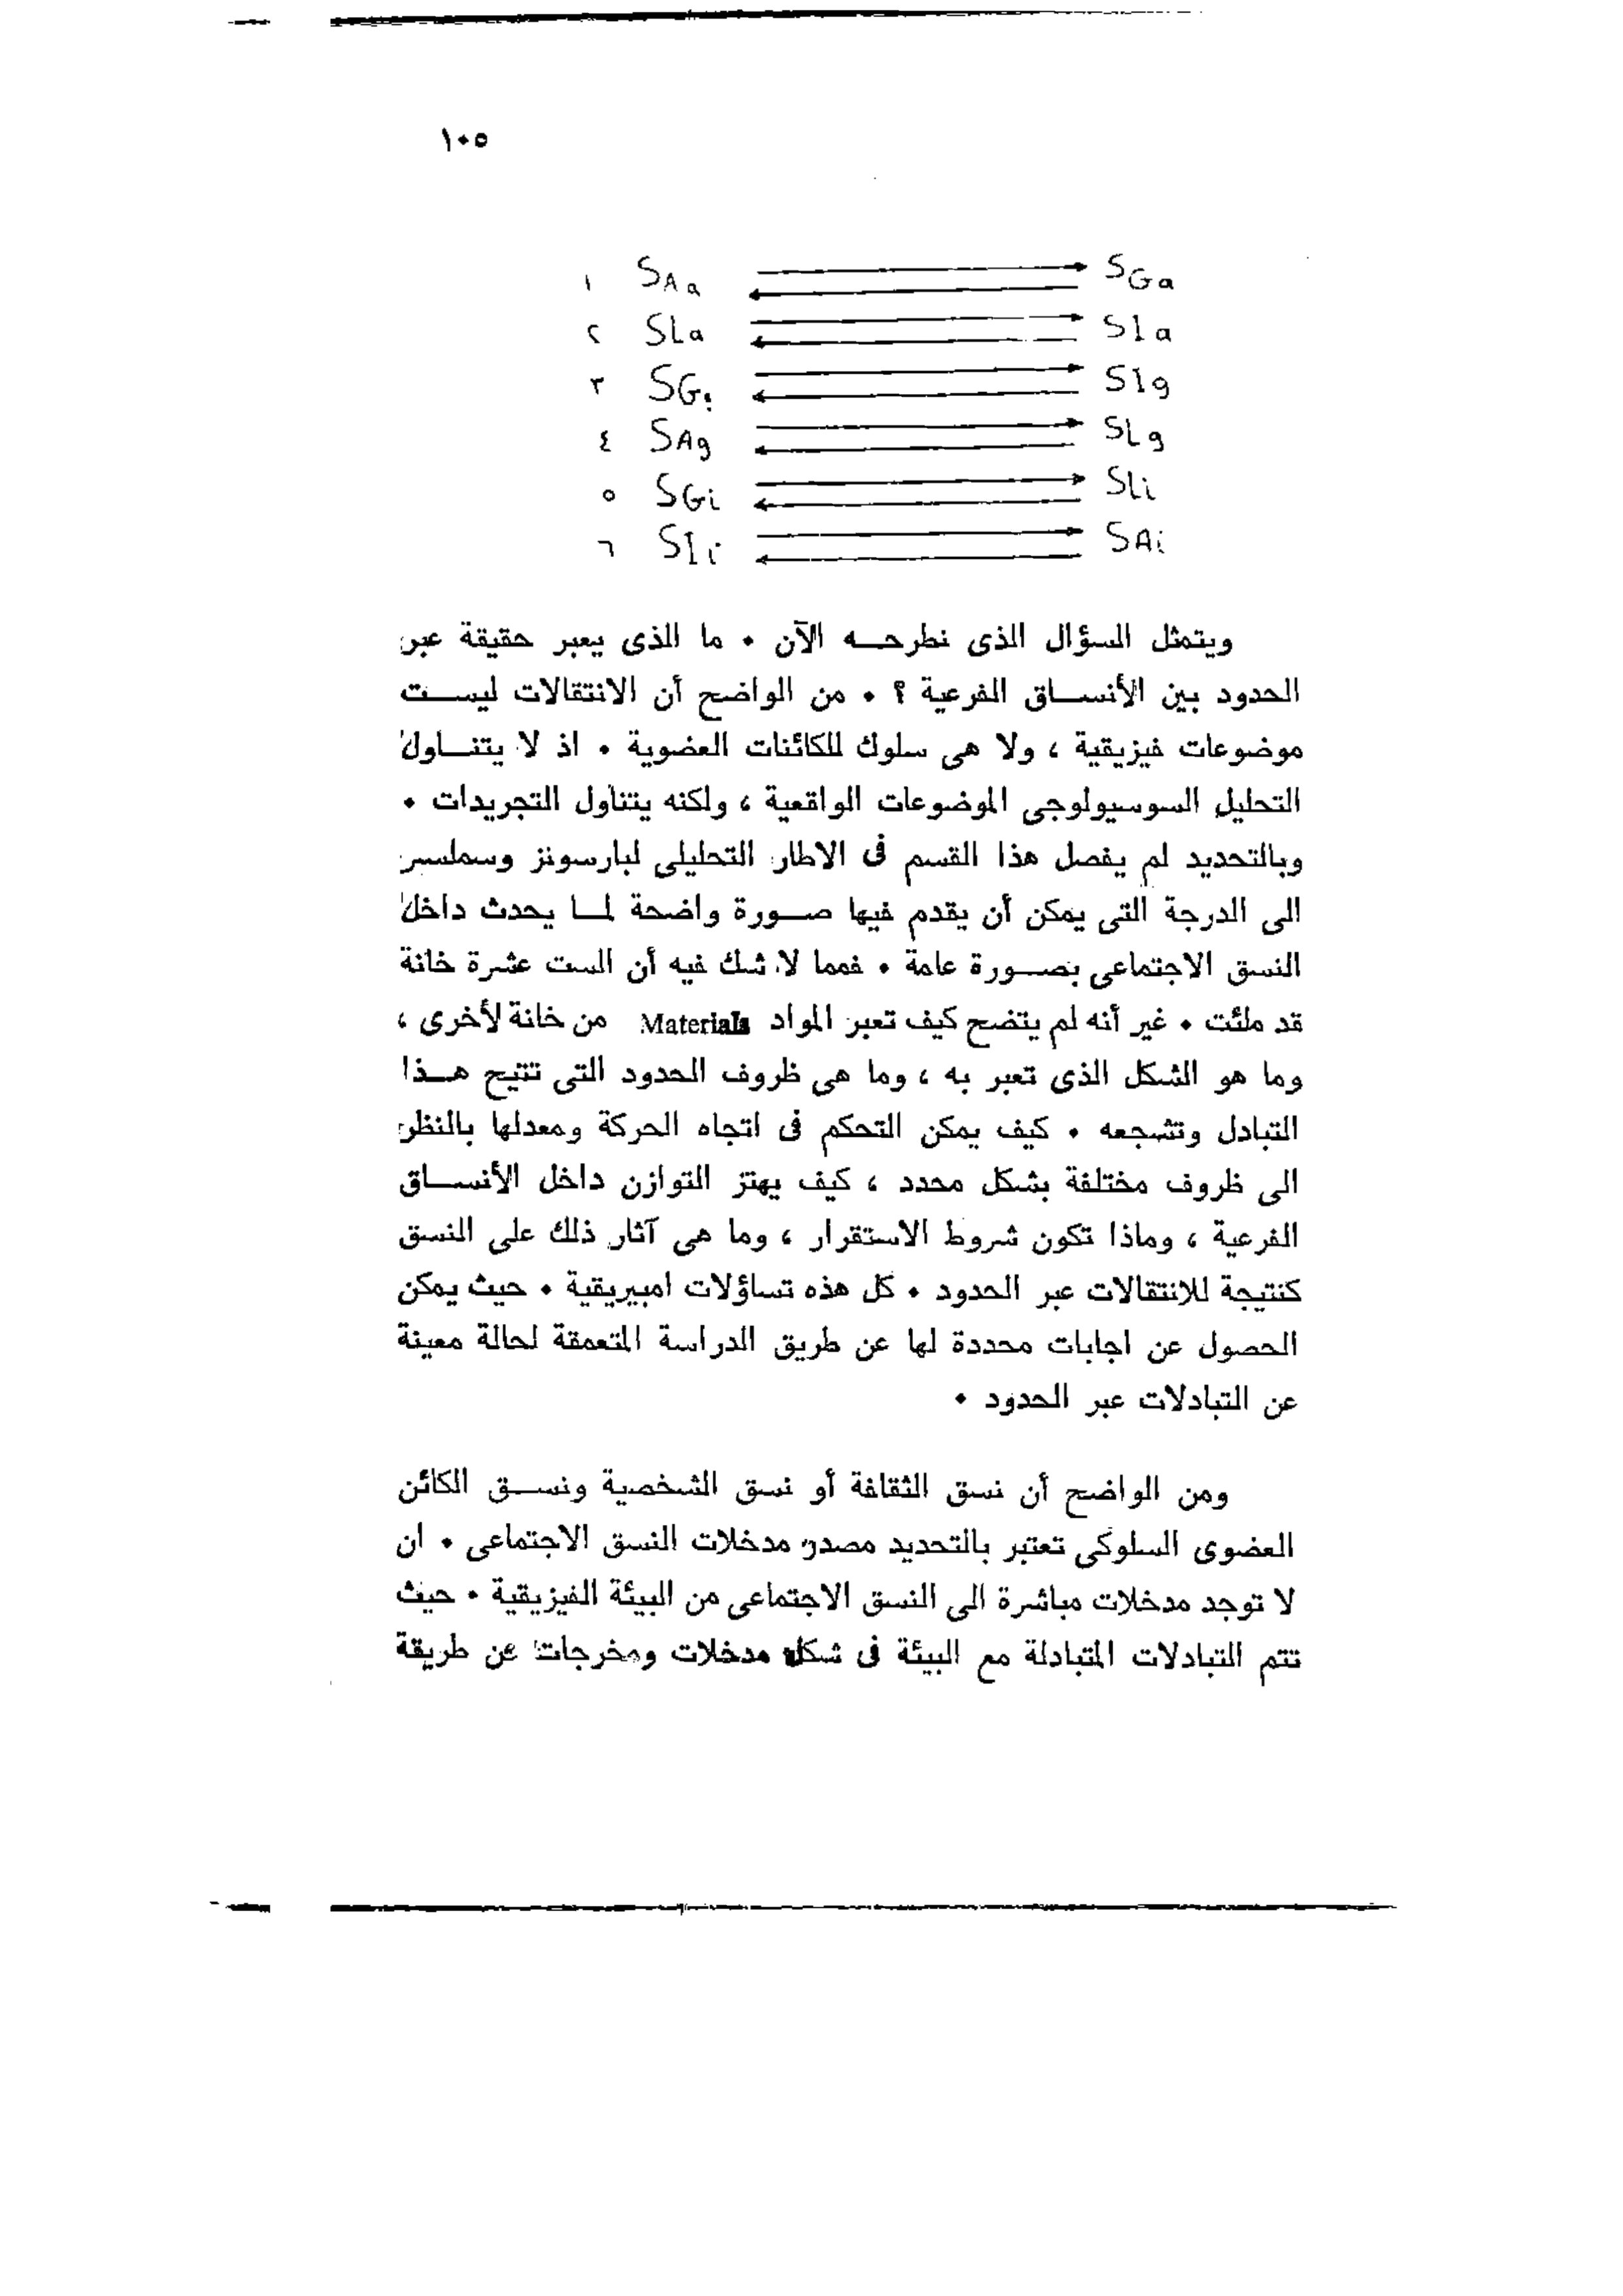 ١٠٥
١ SAa SGa
٢ SLa SIa
٣ SG SIg
٤ SAg SLg
٥ SGi SLi
٦ SIi SAi
ويتمثل السؤال الذى نطرحه الآن • ما الذى يعبر حقيقة عبر
الحدود بين الأنساق الفرعية ؟ • من الواضح أن الانتقالات ليست
موضوعات فيزيقية ، ولا هى سلوك للكائنات العضوية • اذ لا يتناول
التحليل السوسيولوجى الموضوعات الواقعية ، ولكنه يتناول التجريدات •
وبالتحديد لم يفصل هذا القسم فى الاطار التحليلى لبارسونز وسملسر
الى الدرجة التى يمكن أن يقدم فيها صورة واضحة لما يحدث داخل
النسق الاجتماعى بصورة عامة • فمما لا شك فيه أن الست عشرة خانة
قد ملئت • غير أنه لم يتضح كيف تعبر المواد Materials من خانة لأخرى ،
وما هو الشكل الذى تعبر به ، وما هى ظروف الحدود التى تتيح هذا
التبادل وتشجعه • كيف يمكن التحكم فى اتجاه الحركة ومعدلها بالنظر
الى ظروف مختلفة بشكل محدد ، كيف يهتز التوازن داخل الأنساق
الفرعية ، وماذا تكون شروط الاستقرار ، وما هى آثار ذلك على النسق
كنتيجة للانتقالات عبر الحدود • كل هذه تساؤلات امبيريقية • حيث يمكن
الحصول عن اجابات محددة لها عن طريق الدراسة المتعمقة لحالة معينة
عن التبادلات عبر الحدود •
ومن الواضح أن نسق الثقافة أو نسق الشخصية ونسق الكائن
العضوى السلوكى تعتبر بالتحديد مصدر مدخلات النسق الاجتماعى • ان
لا توجد مدخلات مباشرة الى النسق الاجتماعى من البيئة الفيزيقية • حيث
تتم التبادلات المتبادلة مع البيئة فى شكل مدخلات ومخرجات عن طريقة